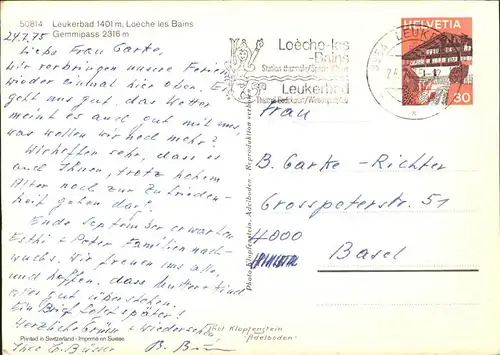 50814 Leukerbad 1401 m, Loèche les Bains
Gemmipass 2316 m
24.7.75
Liebe Frau Garke,
wir verbringen unsere Ferien
wieder einmal hier oben. Es
geht uns gut, das Wetter
meint es auch gut mit uns,
was wollen wir noch mehr?
Wir hoffen sehr, dass es
auch Ihnen, trotz hohem
Alter noch zur Zufrieden-
heit gehen darf.
Ende September erwarten
Esthi + Peter Familien nach-
wuchs. Wir freuen uns alle,
und hoffen, dass Mutter + Kind
alles gut überstehen.
Ein Brief folgt später!
Herzliche Grüsse + Wiedersehen
Printed in Switzerland - Imprimé en Suisse
Photo Klopfenstein, Adelboden. Reproduktion verboten
Photo Klopfenstein
Adelboden
Loèche-les
-Bains
Leukerbad
LEUK
HELVETIA
30
Frau
B. Garke-Richter
Grosspeterstr. 51
4000
Basel